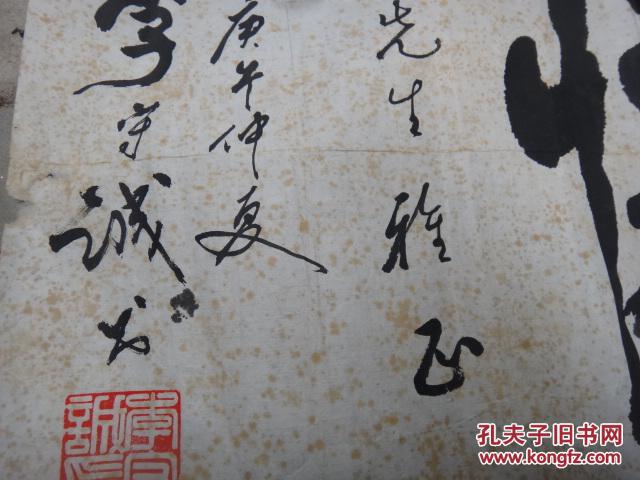 先生雅正
庚午仲夏
李守诚书
孔夫子旧书网
www.kongfz.com